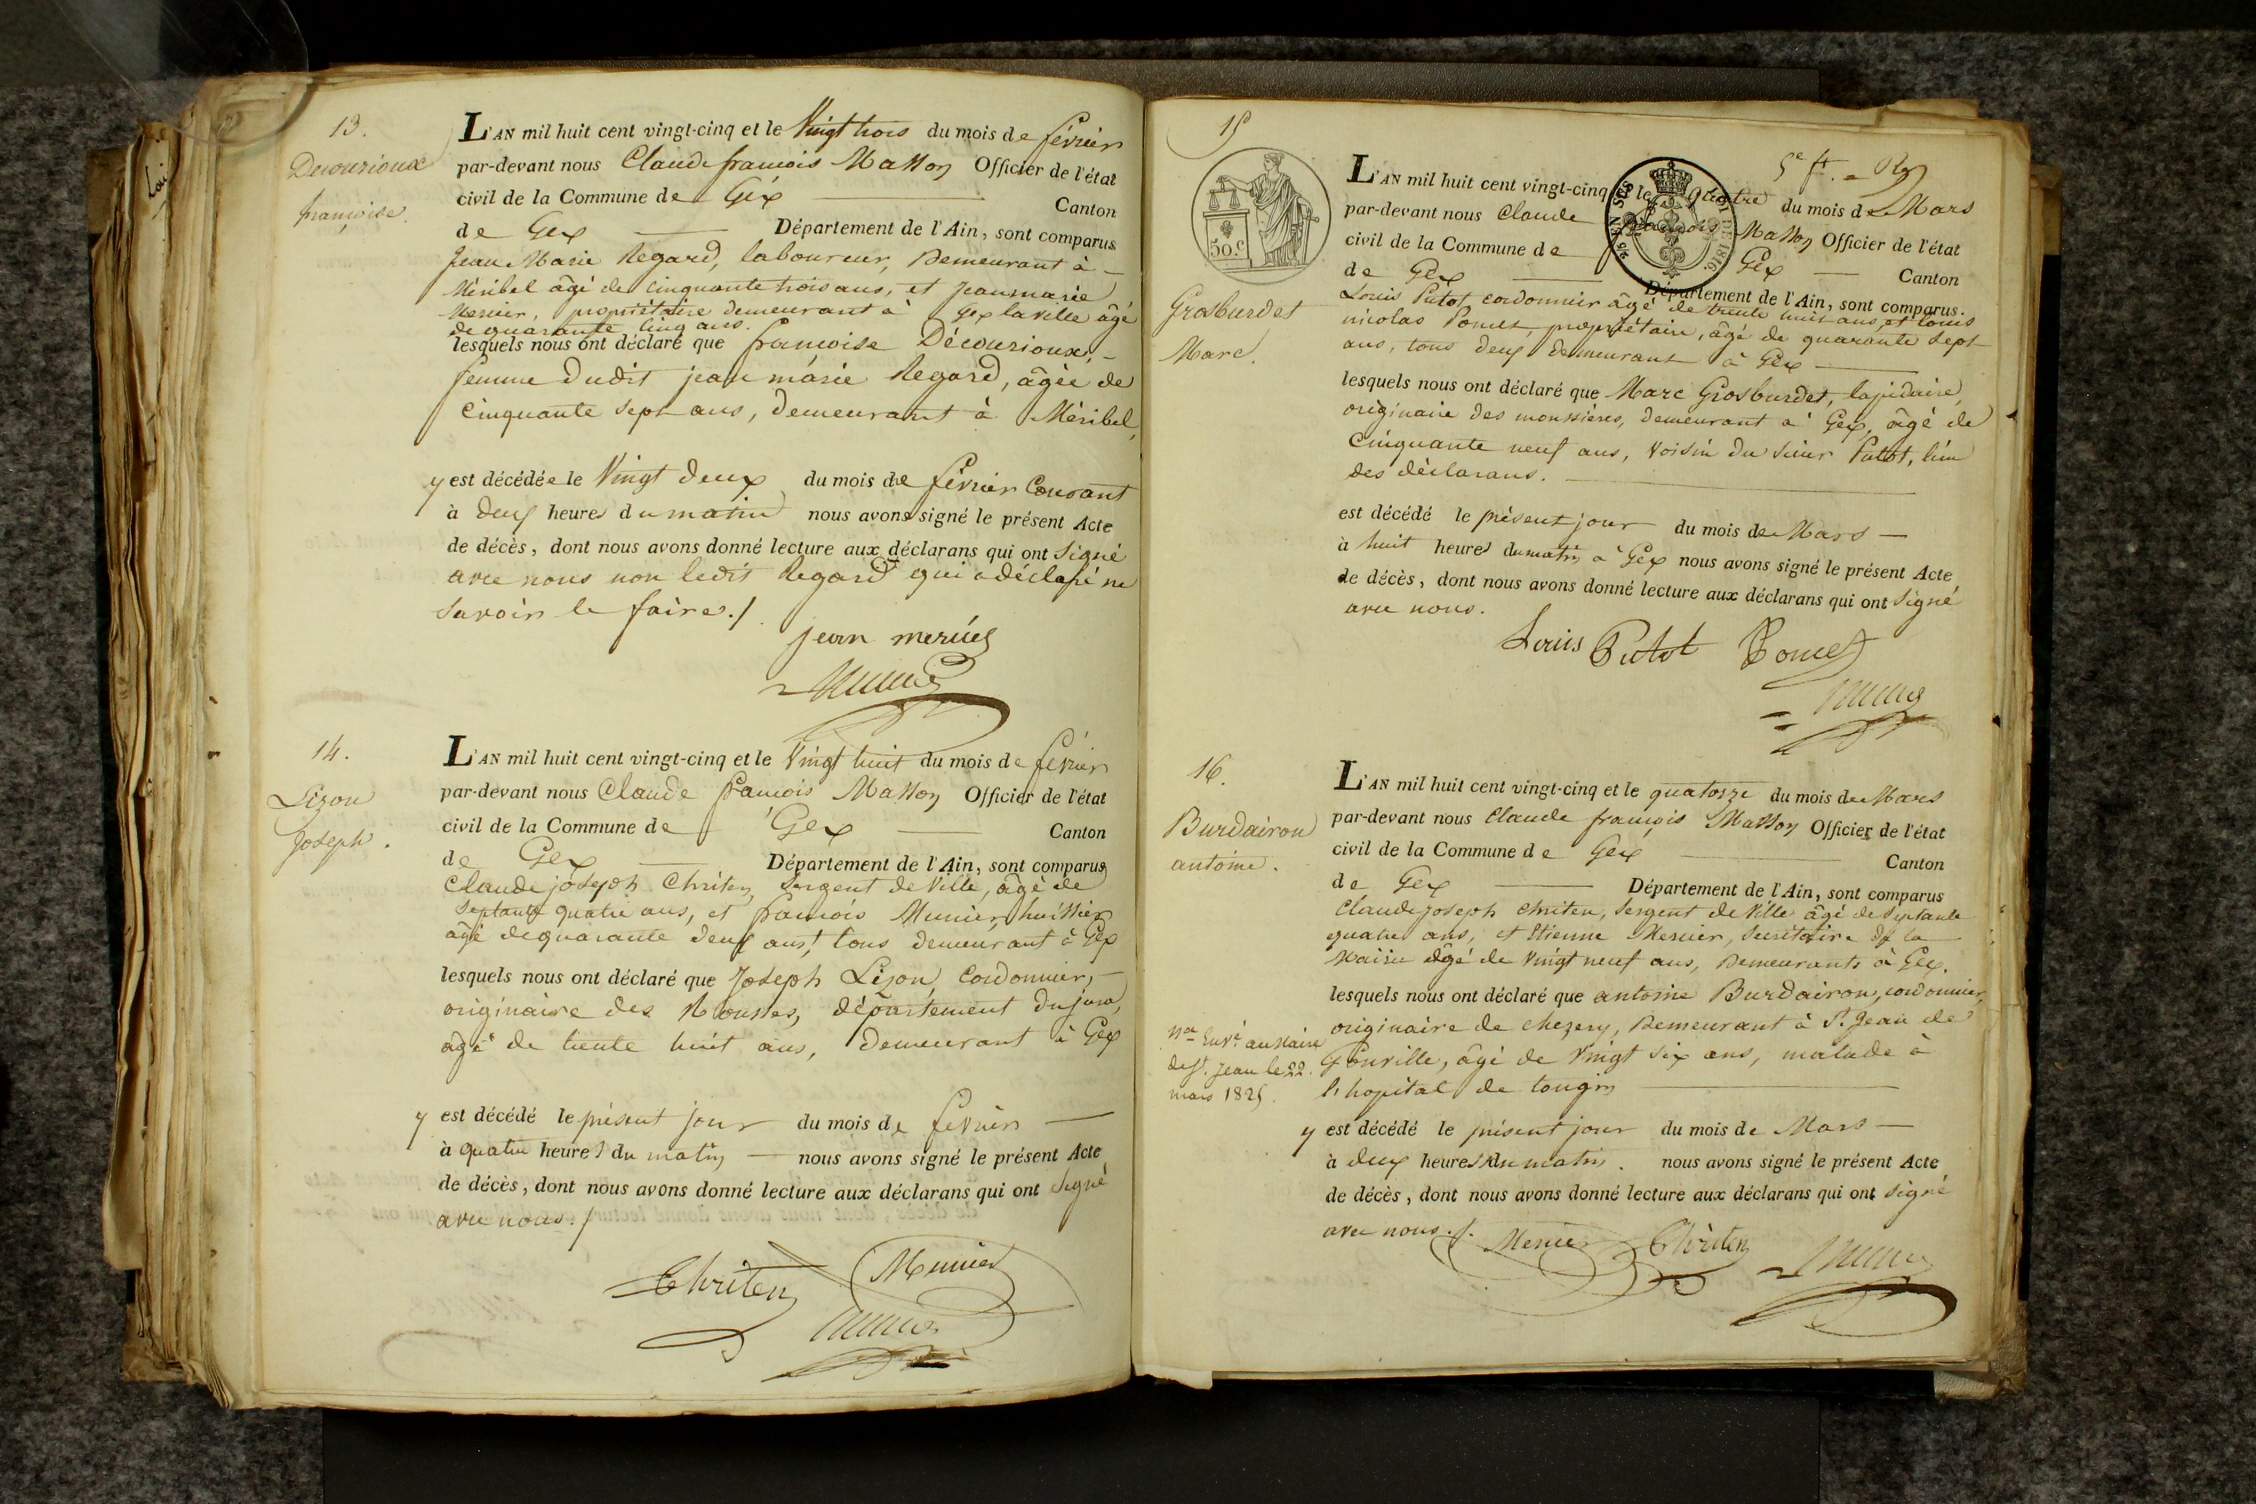 13.
Decourioux
françoise.
L'AN mil huit cent vingt-cinq et le Vingt trois du mois de février
par-devant nous Claude françois Masson Officier de l'état
civil de la Commune de Gex Canton
de Gex Département de l'Ain, sont comparus
Jean Marie Regard, laboureur, Demeurant à
Méribel âgé de cinquante trois ans, et jean marie
Mercier, propriétaire demeurant à Gex la ville âgé
de quarante cinq ans.
lesquels nous ont déclaré que françoise Décourioux,
femme dudit jean marie Regard, âgée de
cinquante sept ans, demeurant à Méribel,
y est décédée le Vingt deux du mois de février Courant
à deux heures du matin nous avons signé le présent Acte
de décès, dont nous avons donné lecture aux déclarans qui ont signé
avec nous non ledit Regard qui a déclaré ne
savoir le faire./.
jean
14.
Lizon
Joseph.
L'AN mil huit cent vingt-cinq et le Vingt huit du mois de février
par-devant nous Claude françois Masson Officier de l'état
civil de la Commune de Gex Canton
de Gex Département de l'Ain, sont comparus
Claude joseph Chriten, Sergent de Ville, âgé de
septante quatre ans, et françois Munier, huissier
âgé de quarante deux ans, tous demeurant à Gex
lesquels nous ont déclaré que Joseph Lizon, Cordonnier,
originaire des Rousses, département du jura,
âgé de trente huit ans, demeurant à Gex
y est décédé le présent jour du mois de février
à quatre heures du matin nous avons signé le présent Acte
de décès, dont nous avons donné lecture aux déclarans qui ont signé
avec nous./
Chriten Munier
15
Grosburdet
Marc.
50.c
EN SUS
LOI DE 1816.
L'AN mil huit cent vingt-cinq et le quatre du mois de Mars
par-devant nous Claude françois Masson Officier de l'état
civil de la Commune de Gex Canton
de Gex Département de l'Ain, sont comparus.
Louis Putot cordonnier âgé de trente huit ans, et louis
nicolas Poncet, propriétaire, âgé de quarante sept
ans, tous deux demeurant à Gex
lesquels nous ont déclaré que Marc Grosburdet, lapidaire,
originaire des moussieres, demeurant à Gex, âgé de
Cinquante neuf ans, voisin du sieur Putot, l'un
des déclarans.
est décédé le présent jour du mois de Mars
à huit heures du matin à Gex nous avons signé le présent Acte
de décès, dont nous avons donné lecture aux déclarans qui ont signé
avec nous.
Louis Putot Poncet
16.
Burdairon
antoine.
L'AN mil huit cent vingt-cinq et le quatorze du mois de Mars
par-devant nous Claude françois Masson Officier de l'état
civil de la Commune de Gex Canton
de Gex Département de l'Ain, sont comparus
Claude joseph Chriten, Sergent de Ville âgé de septante
quatre ans, et Etienne Mercier, secrétaire de la
Mairie âgé de Vingt neuf ans, Demeurants à Gex.
lesquels nous ont déclaré que antoine Burdairon, cordonnier,
originaire de chezery, Demeurant à St. Jean de
Gonville, âgé de Vingt six ans, malade à
l'hopital de tougin
au Maire
de St. Jean le 22.
mars 1825.
y est décédé le présent jour du mois de Mars
à deux heures du matin. nous avons signé le présent Acte
de décès, dont nous avons donné lecture aux déclarans qui ont signé
avec nous./. Mercier Chriten